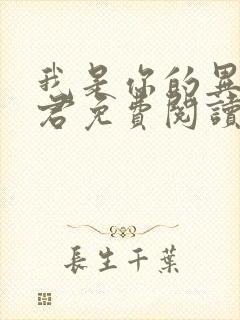 我是你的異
君免費閱讀
長生千葉